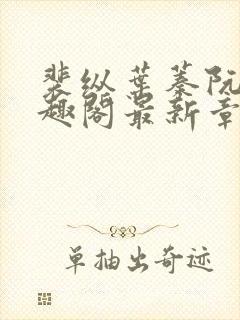 裴纵葉蓁阮
趣阁最新章
单抽出奇迹